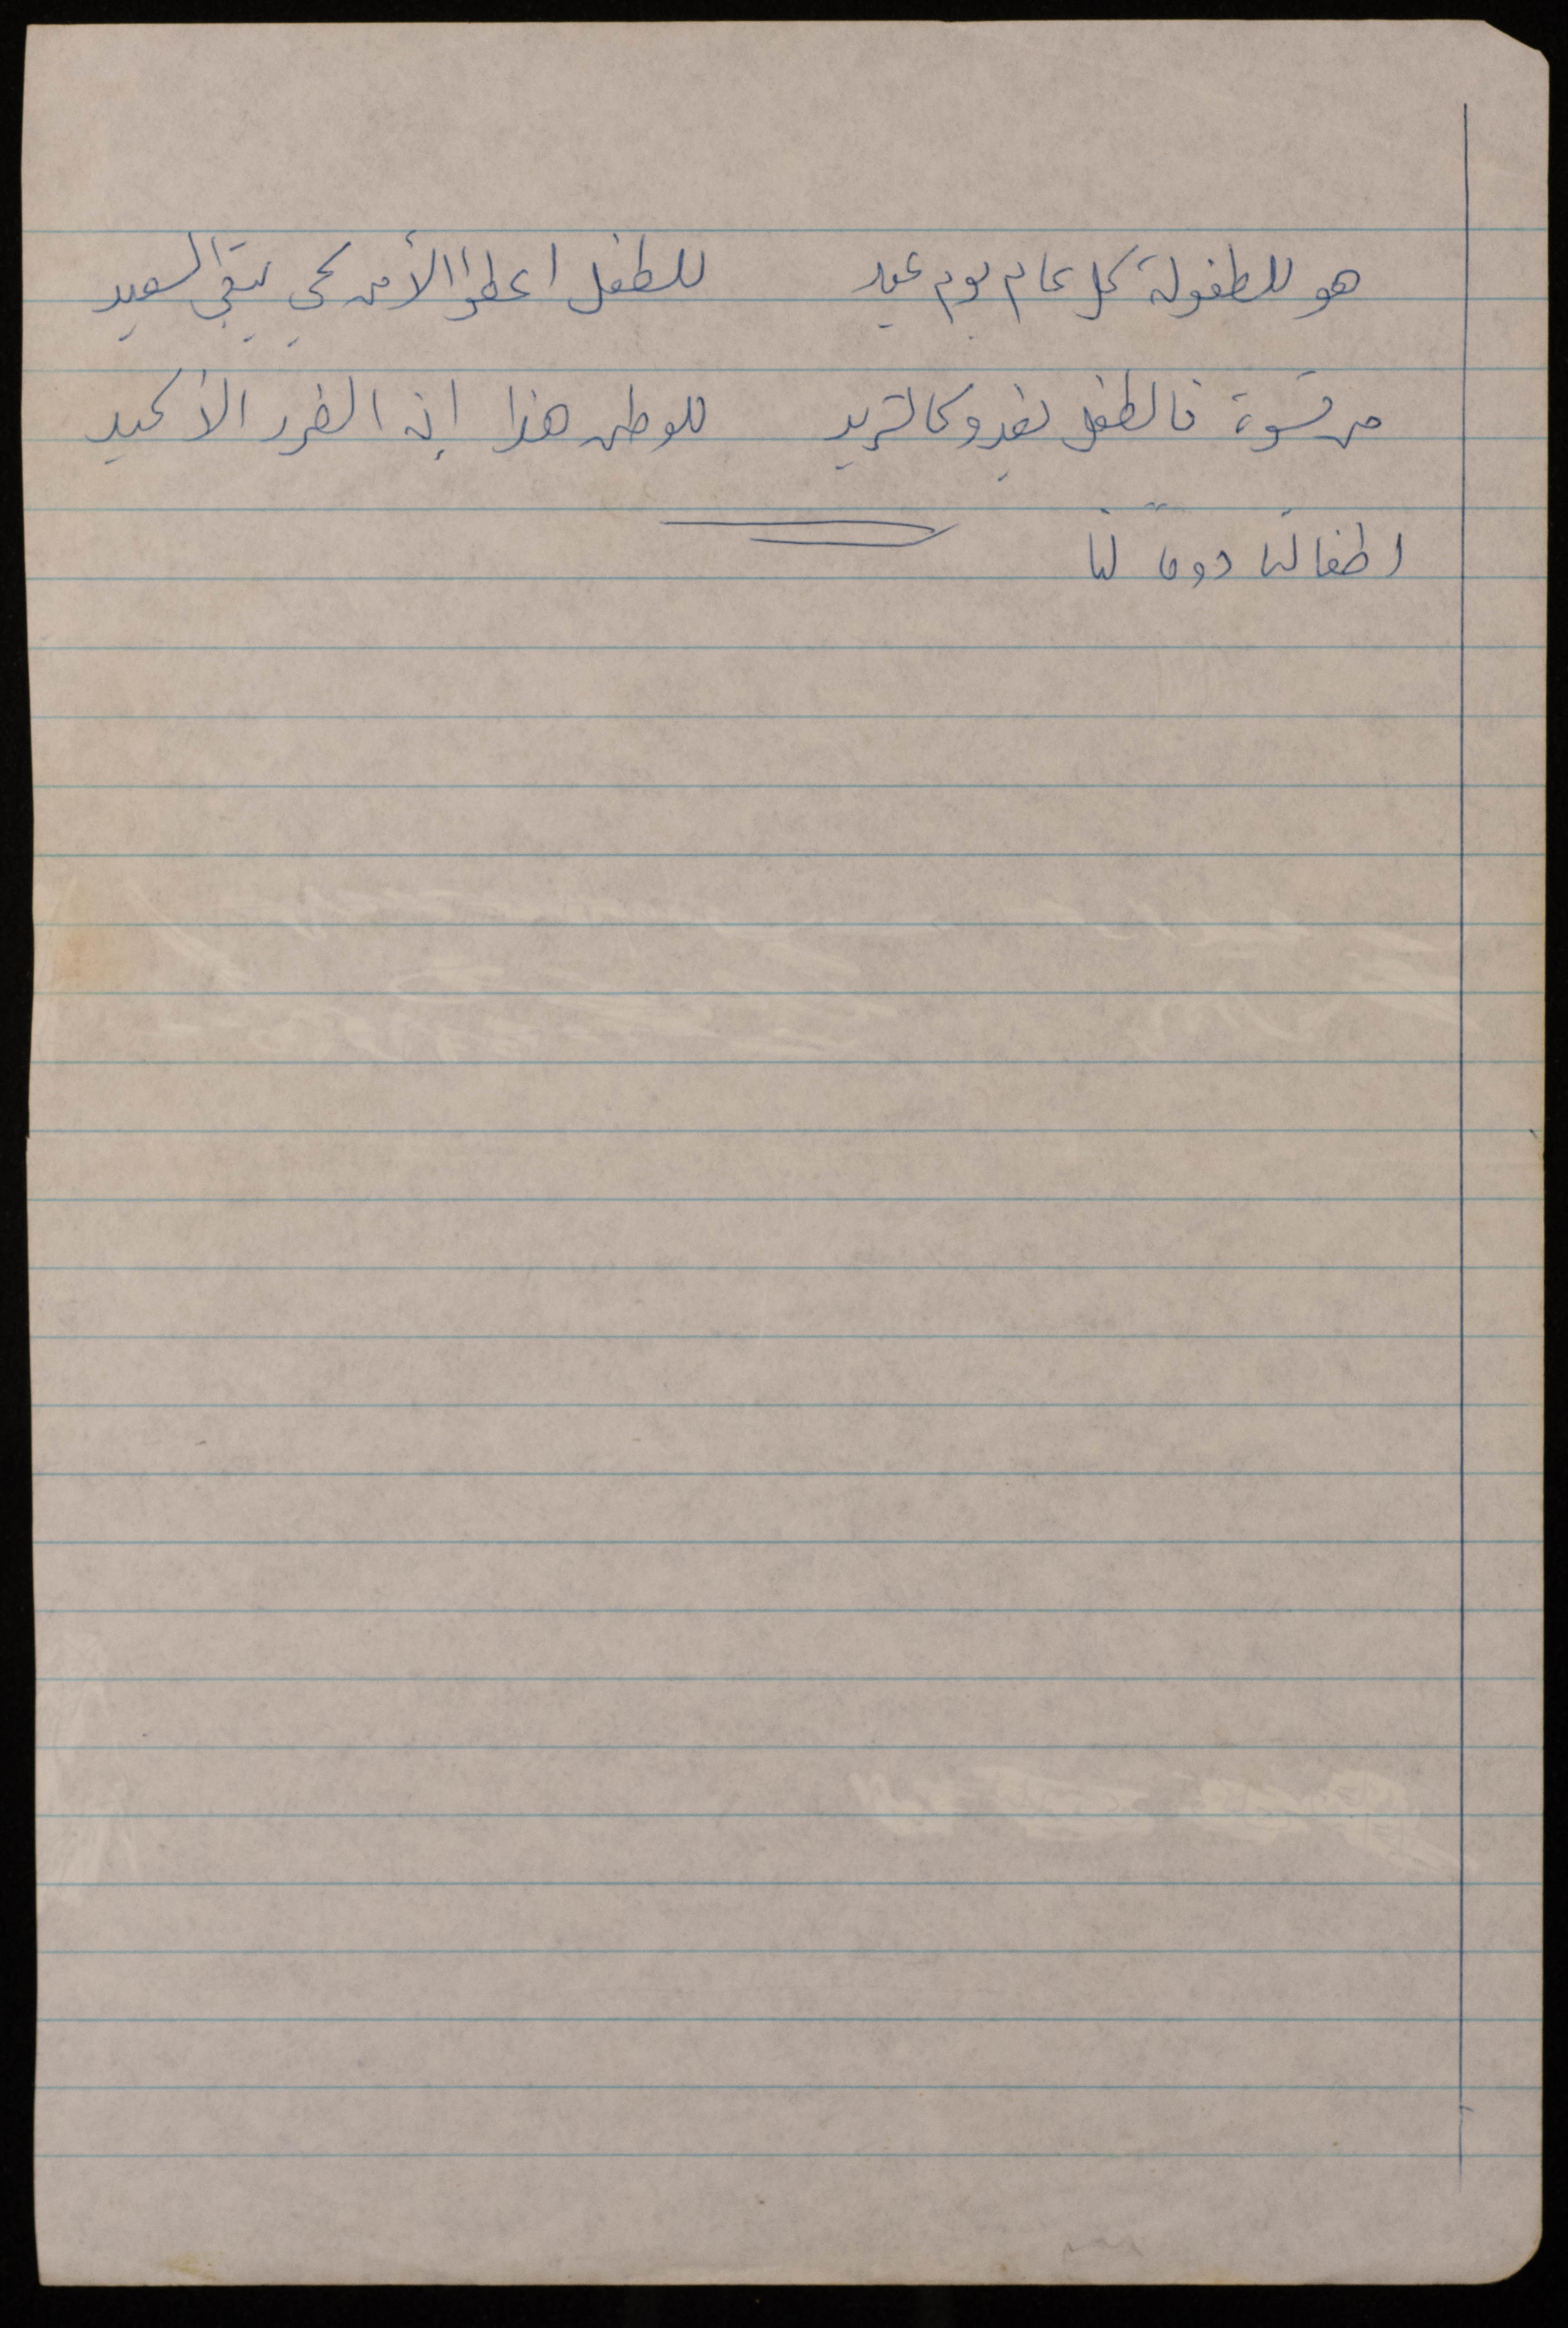 هو للطفولة كل عام يوم عيد للطفل اعطوا الأمن كي يبقى السعيد
من قسوة فالطفل يغدو كالشريد للوطن هذا إنه الضرر الأكيد
اطفالنا دوماً لنا